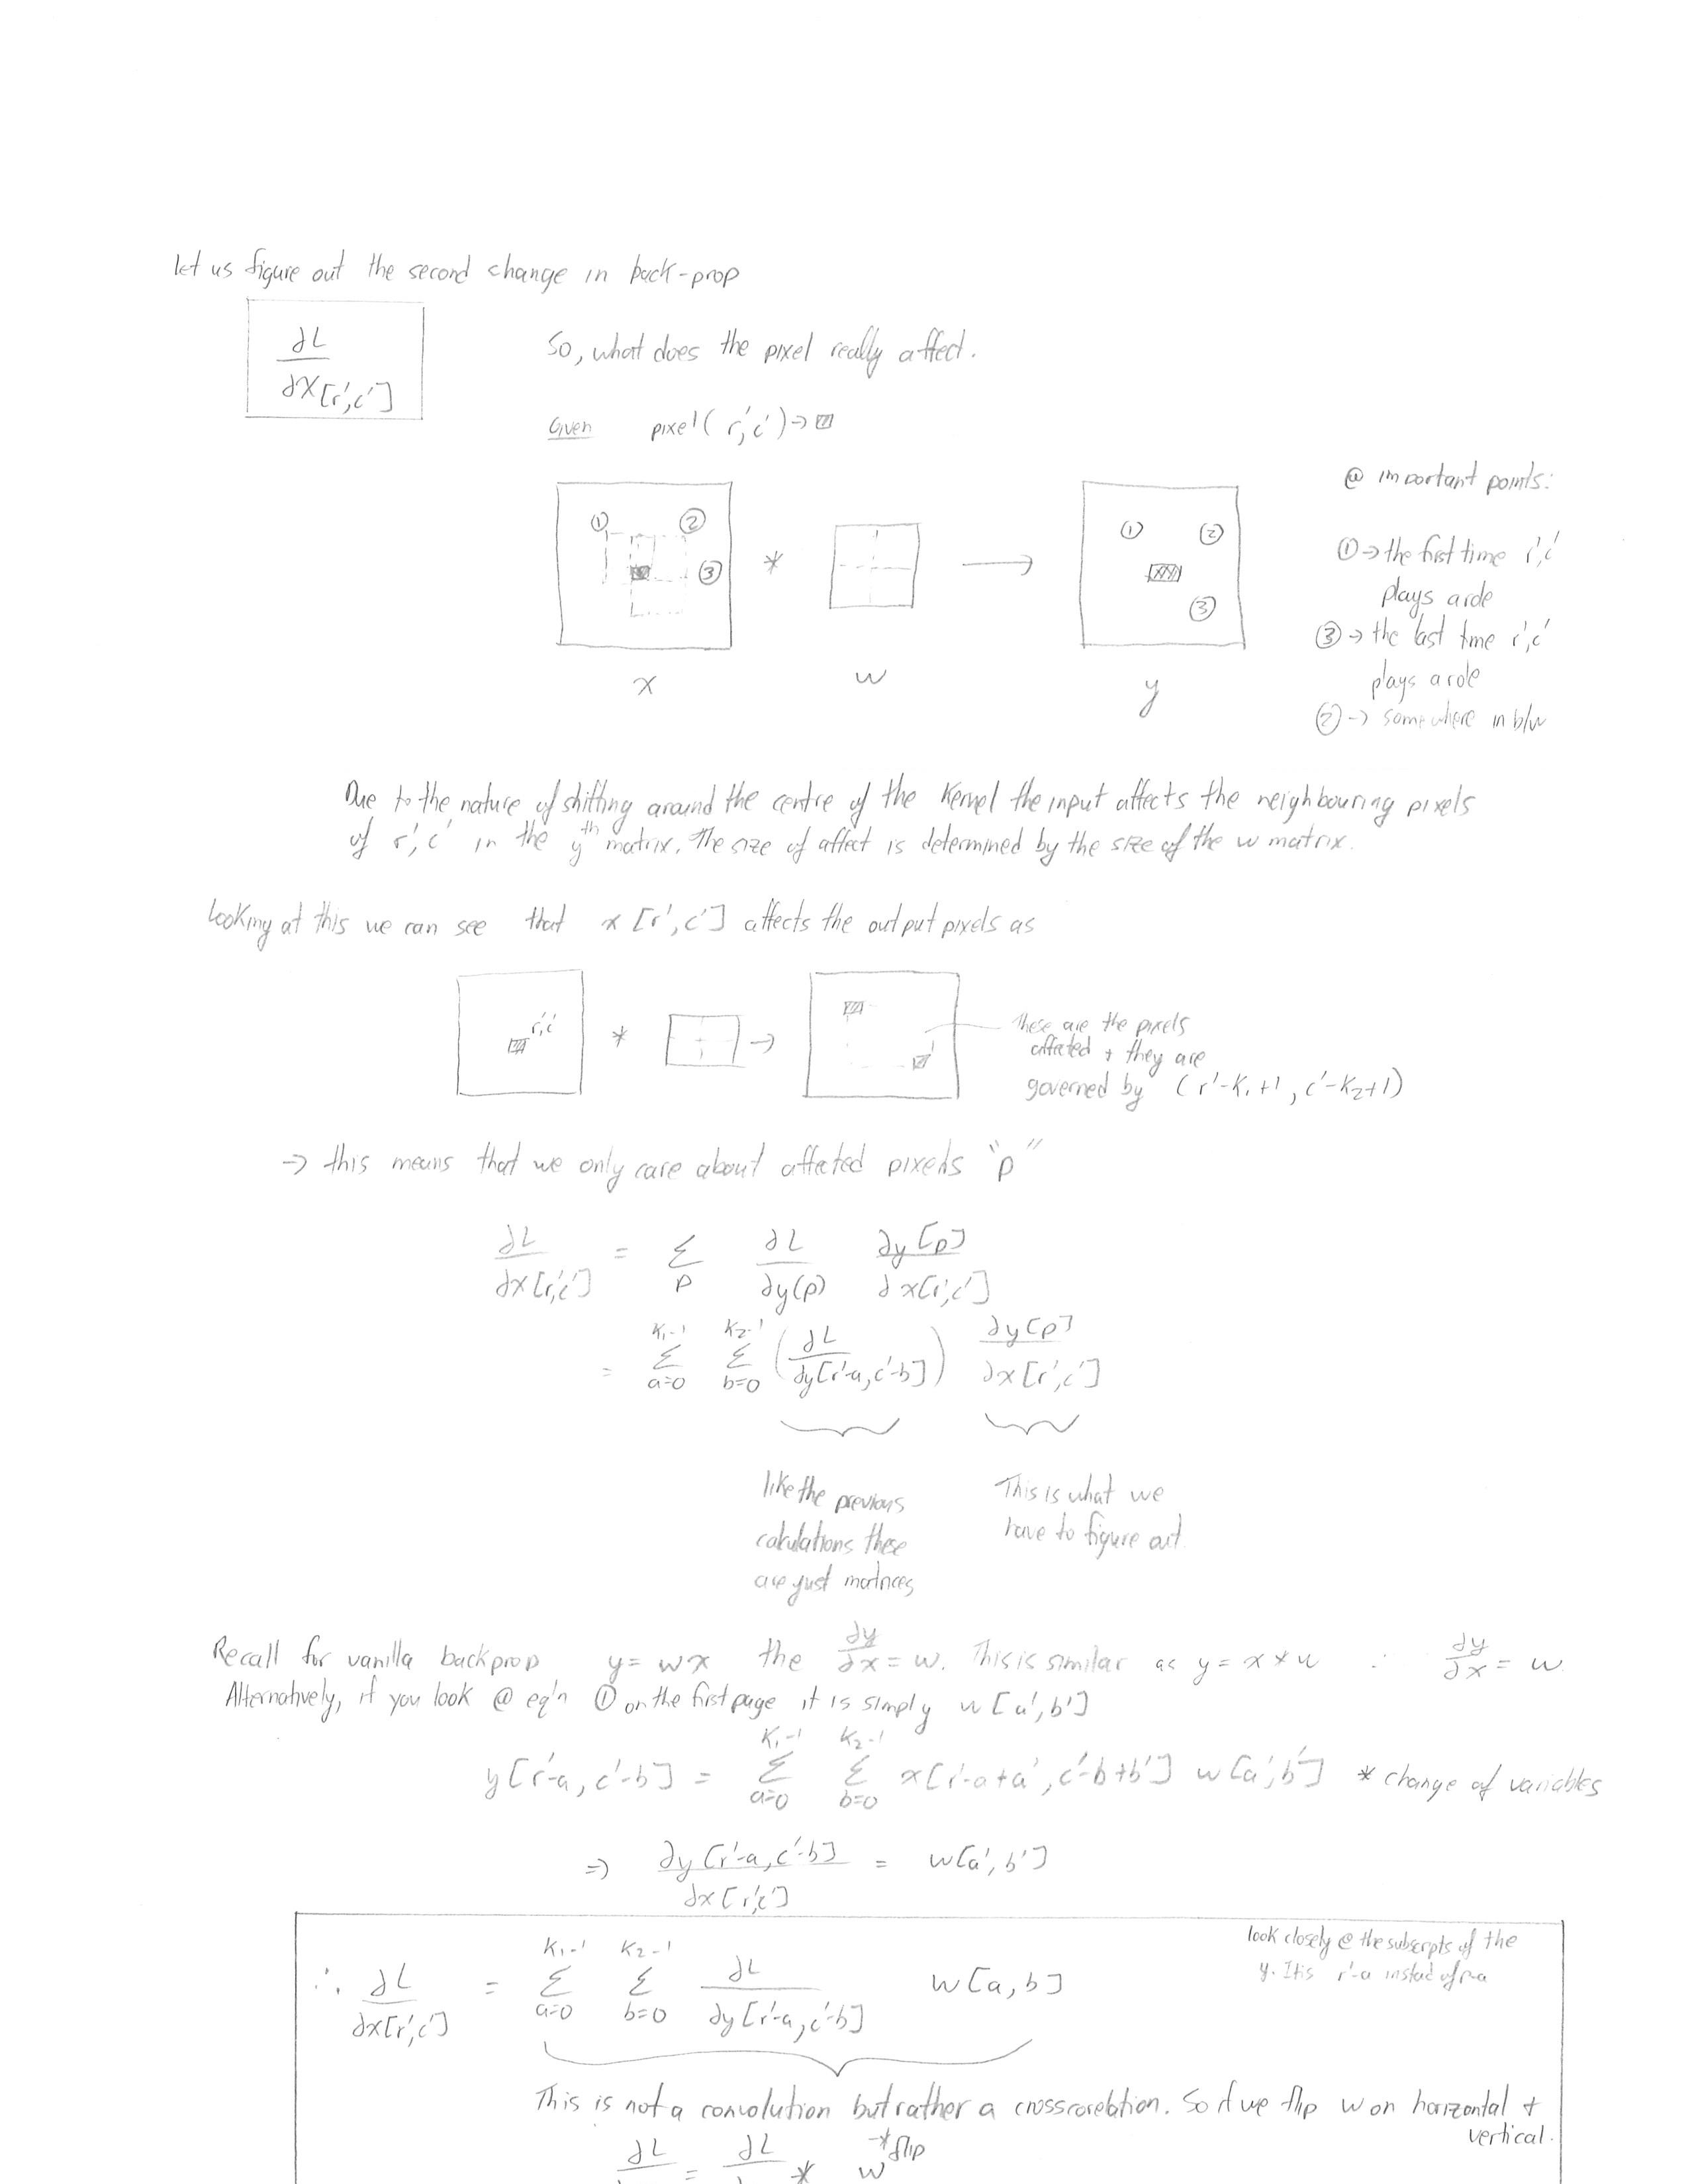 let us figure out the second change in back-prop
∂L
∂X[r',c']
So, what does the pixel really affect.
Given pixel (r',c') →
① ② ③
*
→
① ② ③
x
w
y
@ important points:
① → the first time r',c'
plays a role
③ → the last time r',c'
plays a role
② → somewhere in b/w
Due to the nature of shifting around the centre of the kernel the input affects the neighbouring pixels
of r',c' in the yᵗʰ matrix. The size of affect is determined by the size of the w matrix.
looking at this we can see that x[r',c'] affects the output pixels as
r',c' * →
These are the pixels
affected + they are
governed by (r'-K₁+1, c'-K₂+1)
→ this means that we only care about affected pixels "p"
∂L/∂x[r',c'] = Σ_p ∂L/∂y(p) ∂y[p]/∂x[r',c']
= Σ_{a=0}^{K₁-1} Σ_{b=0}^{K₂-1} (∂L/∂y[r'-a,c'-b]) ∂y[p]/∂x[r',c']
like the previous
calculations these
are just matrices
This is what we
have to figure out.
Recall for vanilla backprop y = wx the ∂y/∂x = w. This is similar as y = x * w ∴ ∂y/∂x = w
Alternatively, if you look @ eq'n ① on the first page it is simply w[a',b']
y[r'-a, c'-b] = Σ_{a=0}^{K₁-1} Σ_{b=0}^{K₂-1} x[r'-a+a', c'-b+b'] w[a',b'] * change of variables
⇒ ∂y[r'-a, c'-b]/∂x[r',c'] = w[a',b']
look closely @ the subscripts of the
y. It is r'-a instead of
∴ ∂L/∂x[r',c'] = Σ_{a=0}^{K₁-1} Σ_{b=0}^{K₂-1} ∂L/∂y[r'-a,c'-b] w[a,b]
This is not a convolution but rather a crosscorelation. So if we flip w on horizontal +
vertical.
∂L = ∂L * w flip